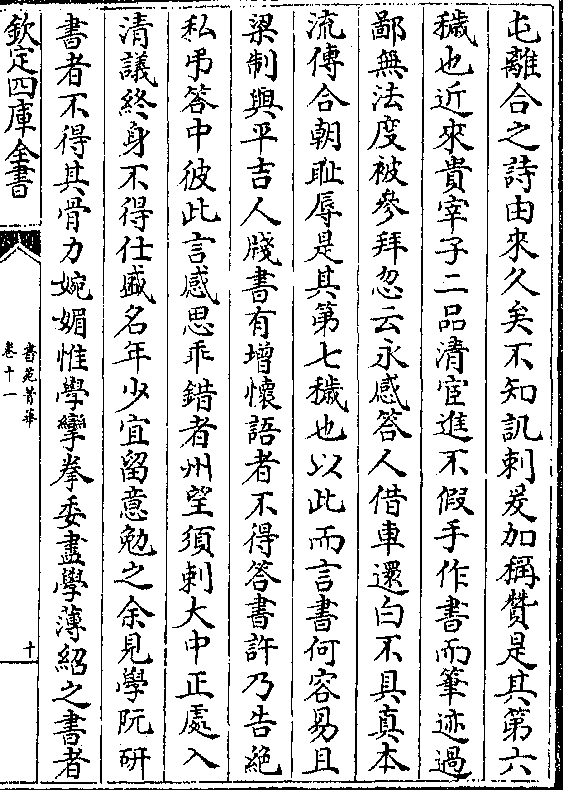 屯離合之詩由來久矣不知譏刺爰加稱贊是其第六
穢也近來貴宰子二品清宦進不假手作書而筆迹過
鄙無法度被參拜忽云永感答人借車還白不具真本
流傳合朝耻辱是其第七穢也以此而言書何容易且
梁制與平吉人牋書有增懷語者不得答書許乃告絶
私弔答中彼此言感思乖錯者州望須刺大中正處入
清議終身不得仕盛名年少宜留意勉之余見學阮研
書者不得其骨力婉媚惟學攣拳委盡學薄紹之書者
欽定四庫全書
書苑菁華
卷十一
十